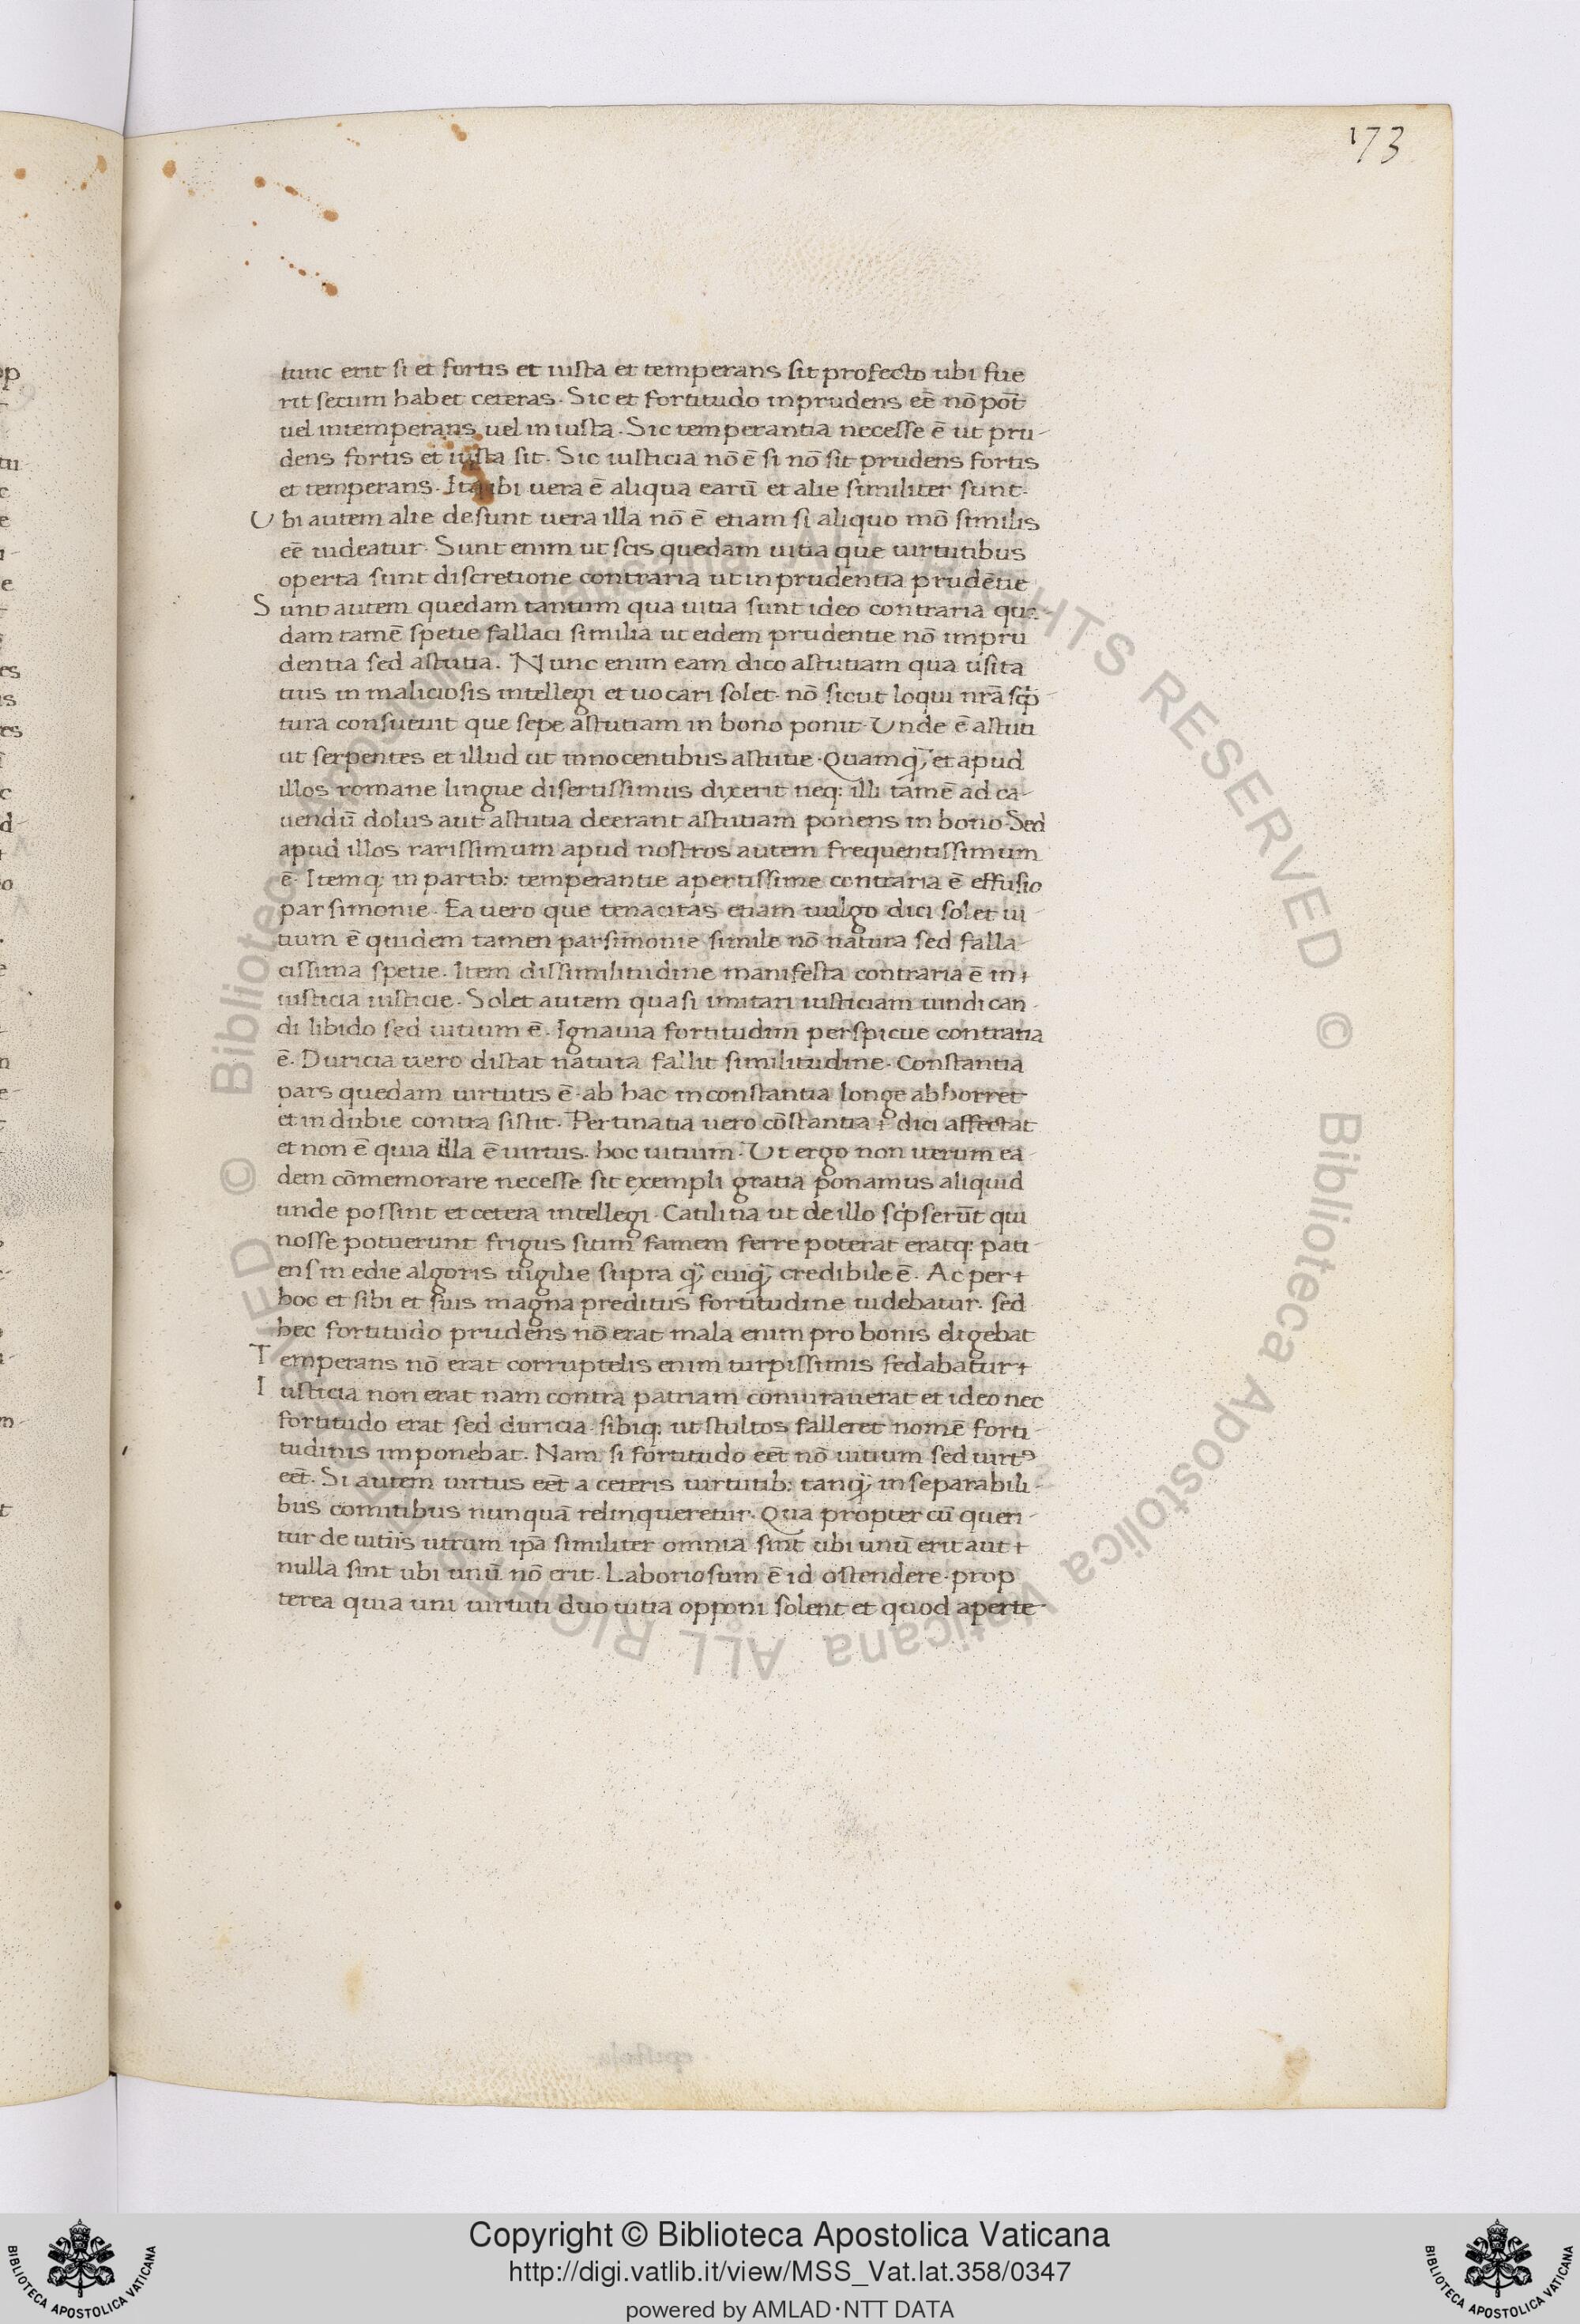 173
tunc erit si et fortis et iusta et temperans sit profecto ubi fue
rit secum habet ceteras. Sic et fortitudo inprudens eē nō pōt
uel intemperans uel iniusta. Sic temperantia necesse ē ut pru-
dens fortis et iusta sit. Sic iusticia nō ē si nō sit prudens fortis
et temperans. Ita ubi uera ē aliqua earū et alie similiter sunt.
Ubi autem alie desunt uera illa nō ē etiam si aliquo mō similis
eē uideatur. Sunt enim ut scis quedam uitia que uirtutibus
operta sunt discretione contraria ut inprudentia prudētie
Sunt autem quedam tantum qua uitia sunt ideo contraria que-
dam tamē spetie fallaci similia ut eidem prudentie nō impru
dentia sed astutia. Nunc enim eam dico astutiam qua usita
tius in maliciosis intellegi et uocari solet. nō sicut loqui nrā scrip-
tura consueuit que sepe astutiam in bono ponit. Unde ē astuti
ut serpentes et illud ut innocentibus astutie. Quamq̄; et apud
illos romane lingue disertissimus dixerit neq: illi tamē ad ca-
uendū dolus aut astutia deerant astutiam ponens in bono. Sed
apud illos rarissimum apud nostros autem frequentissimum
ē. Itemq; in partib: temperantie apertissime contraria ē effusio
parsimonie. Ea uero que tenacitas etiam uulgo dici solet ui-
tium ē quidem tamen parsimonie simile nō natura sed falla-
cissima spetie. Item dissimilitudine manifesta contraria ē in+
iusticia iusticie. Solet autem quasi imitari iusticiam uindican-
di libido sed uitium ē. Ignauia fortitudini perspicue contraria
ē. Duricia uero distat natura fallit similitudine. Constantia
pars quedam uirtutis ē. ab hac inconstantia longe abhorret
et indubie contra sistit. Pertinatia uero cōstantia + dici affectat
et non ē quia illa ē uirtus. hoc uitium. Ut ergo non iterum ea-
dem cōmemorare necesse sit exempli gratia ponamus aliquid
unde possint et cetera intellegi. Catilina ut de illo scripserūt qui
nosse potuerunt frigus sitim famem ferre poterat eratq: pati-
ens inedie algoris uigilie supra q̄; cuiq̄; credibile ē. Ac per+
hoc et sibi et suis magna preditus fortitudine uidebatur. sed
hec fortitudo prudens nō erat mala enim pro bonis eligebat
Temperans nō erat corruptelis enim turpissimis fedabatur+
Iusticia non erat nam contra patriam coniurauerat et ideo nec
fortitudo erat sed duricia. sibiq; ut stultos falleret nomē forti-
tudinis imponebat. Nam si fortitudo eēt nō uitium sed uirtꝰ
eēt. Si autem uirtus eēt a ceteris uirtutib: tanq̄; inseparabili-
bus comitibus nunquā relinqueretur. Qua propter cū queri-
tur de uitiis utrum ipā similiter omnia sint ubi unū erit aut +
nulla sint ubi unū nō erit. Laboriosum ē id ostendere. prop
terea quia uni uirtuti duo uitia opponi solent et quod aperte
Copyright © Biblioteca Apostolica Vaticana
http://digi.vatlib.it/view/MSS_Vat.lat.358/0347
powered by AMLAD·NTT DATA
BIBLIOTECA APOSTOLICA VATICANA
BIBLIOTECA APOSTOLICA VATICANA